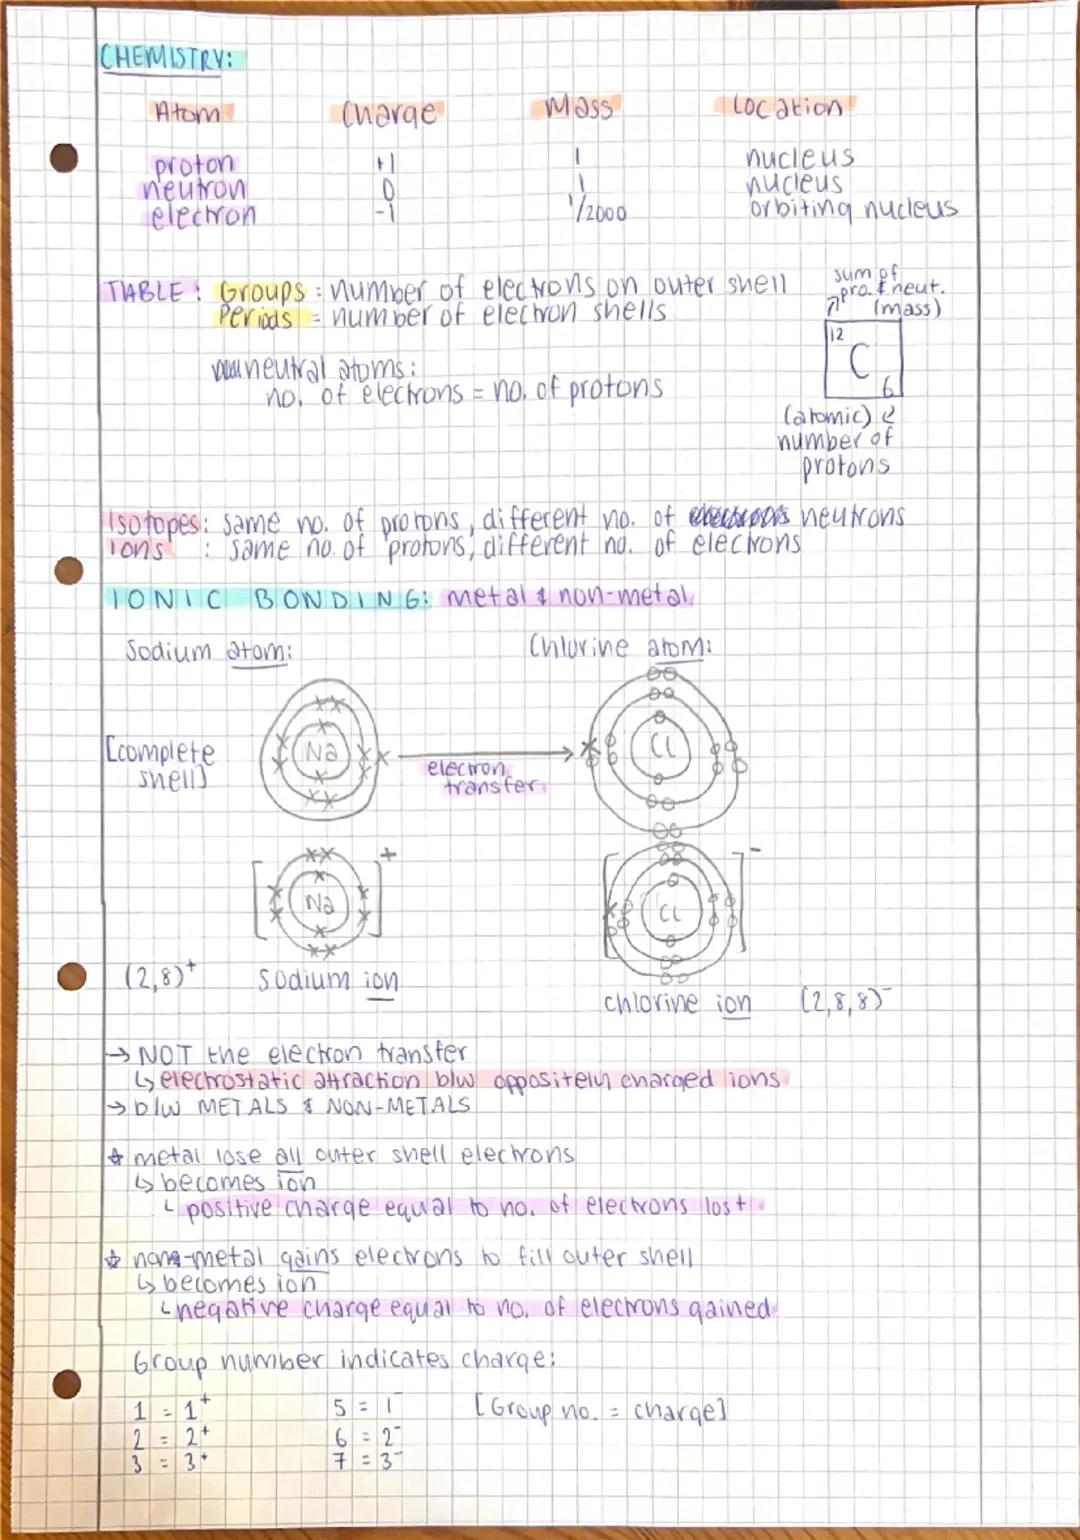 CHEMISTRY:
Atom Charge Mass Location
proton +1 1 nucleus
neutron 0 1 nucleus
electron -1 1/2000 orbiting nucleus
TABLE: Groups = number of electrons on outer shell
Periods = number of electron shells
sum of
pro. & neut.
(mass)
12
C
6
(atomic)
number of
protons
neutral atoms:
no. of electrons = no. of protons
Isotopes: same no. of protons, different no. of neutrons
Ions : same no. of protons, different no. of electrons
IONIC BONDING: metal & non-metal
Sodium atom: Chlorine atom:
[complete
shell]
Na
electron
transfer
Cl
Na +
Cl -
(2,8)⁺ sodium ion
chlorine ion (2,8,8)⁻
→ NOT the electron transfer
↳ electrostatic attraction b/w oppositely charged ions
→ b/w METALS & NON-METALS
☆ metal lose all outer shell electrons
↳ becomes ion
↳ positive charge equal to no. of electrons lost.
☆ non-metal gains electrons to fill outer shell
↳ becomes ion
↳ negative charge equal to no. of electrons gained
Group number indicates charge:
1 = 1⁺ 5 = 1⁻ [Group no. = charge]
2 = 2⁺ 6 = 2⁻
3 = 3⁺ 7 = 3⁻